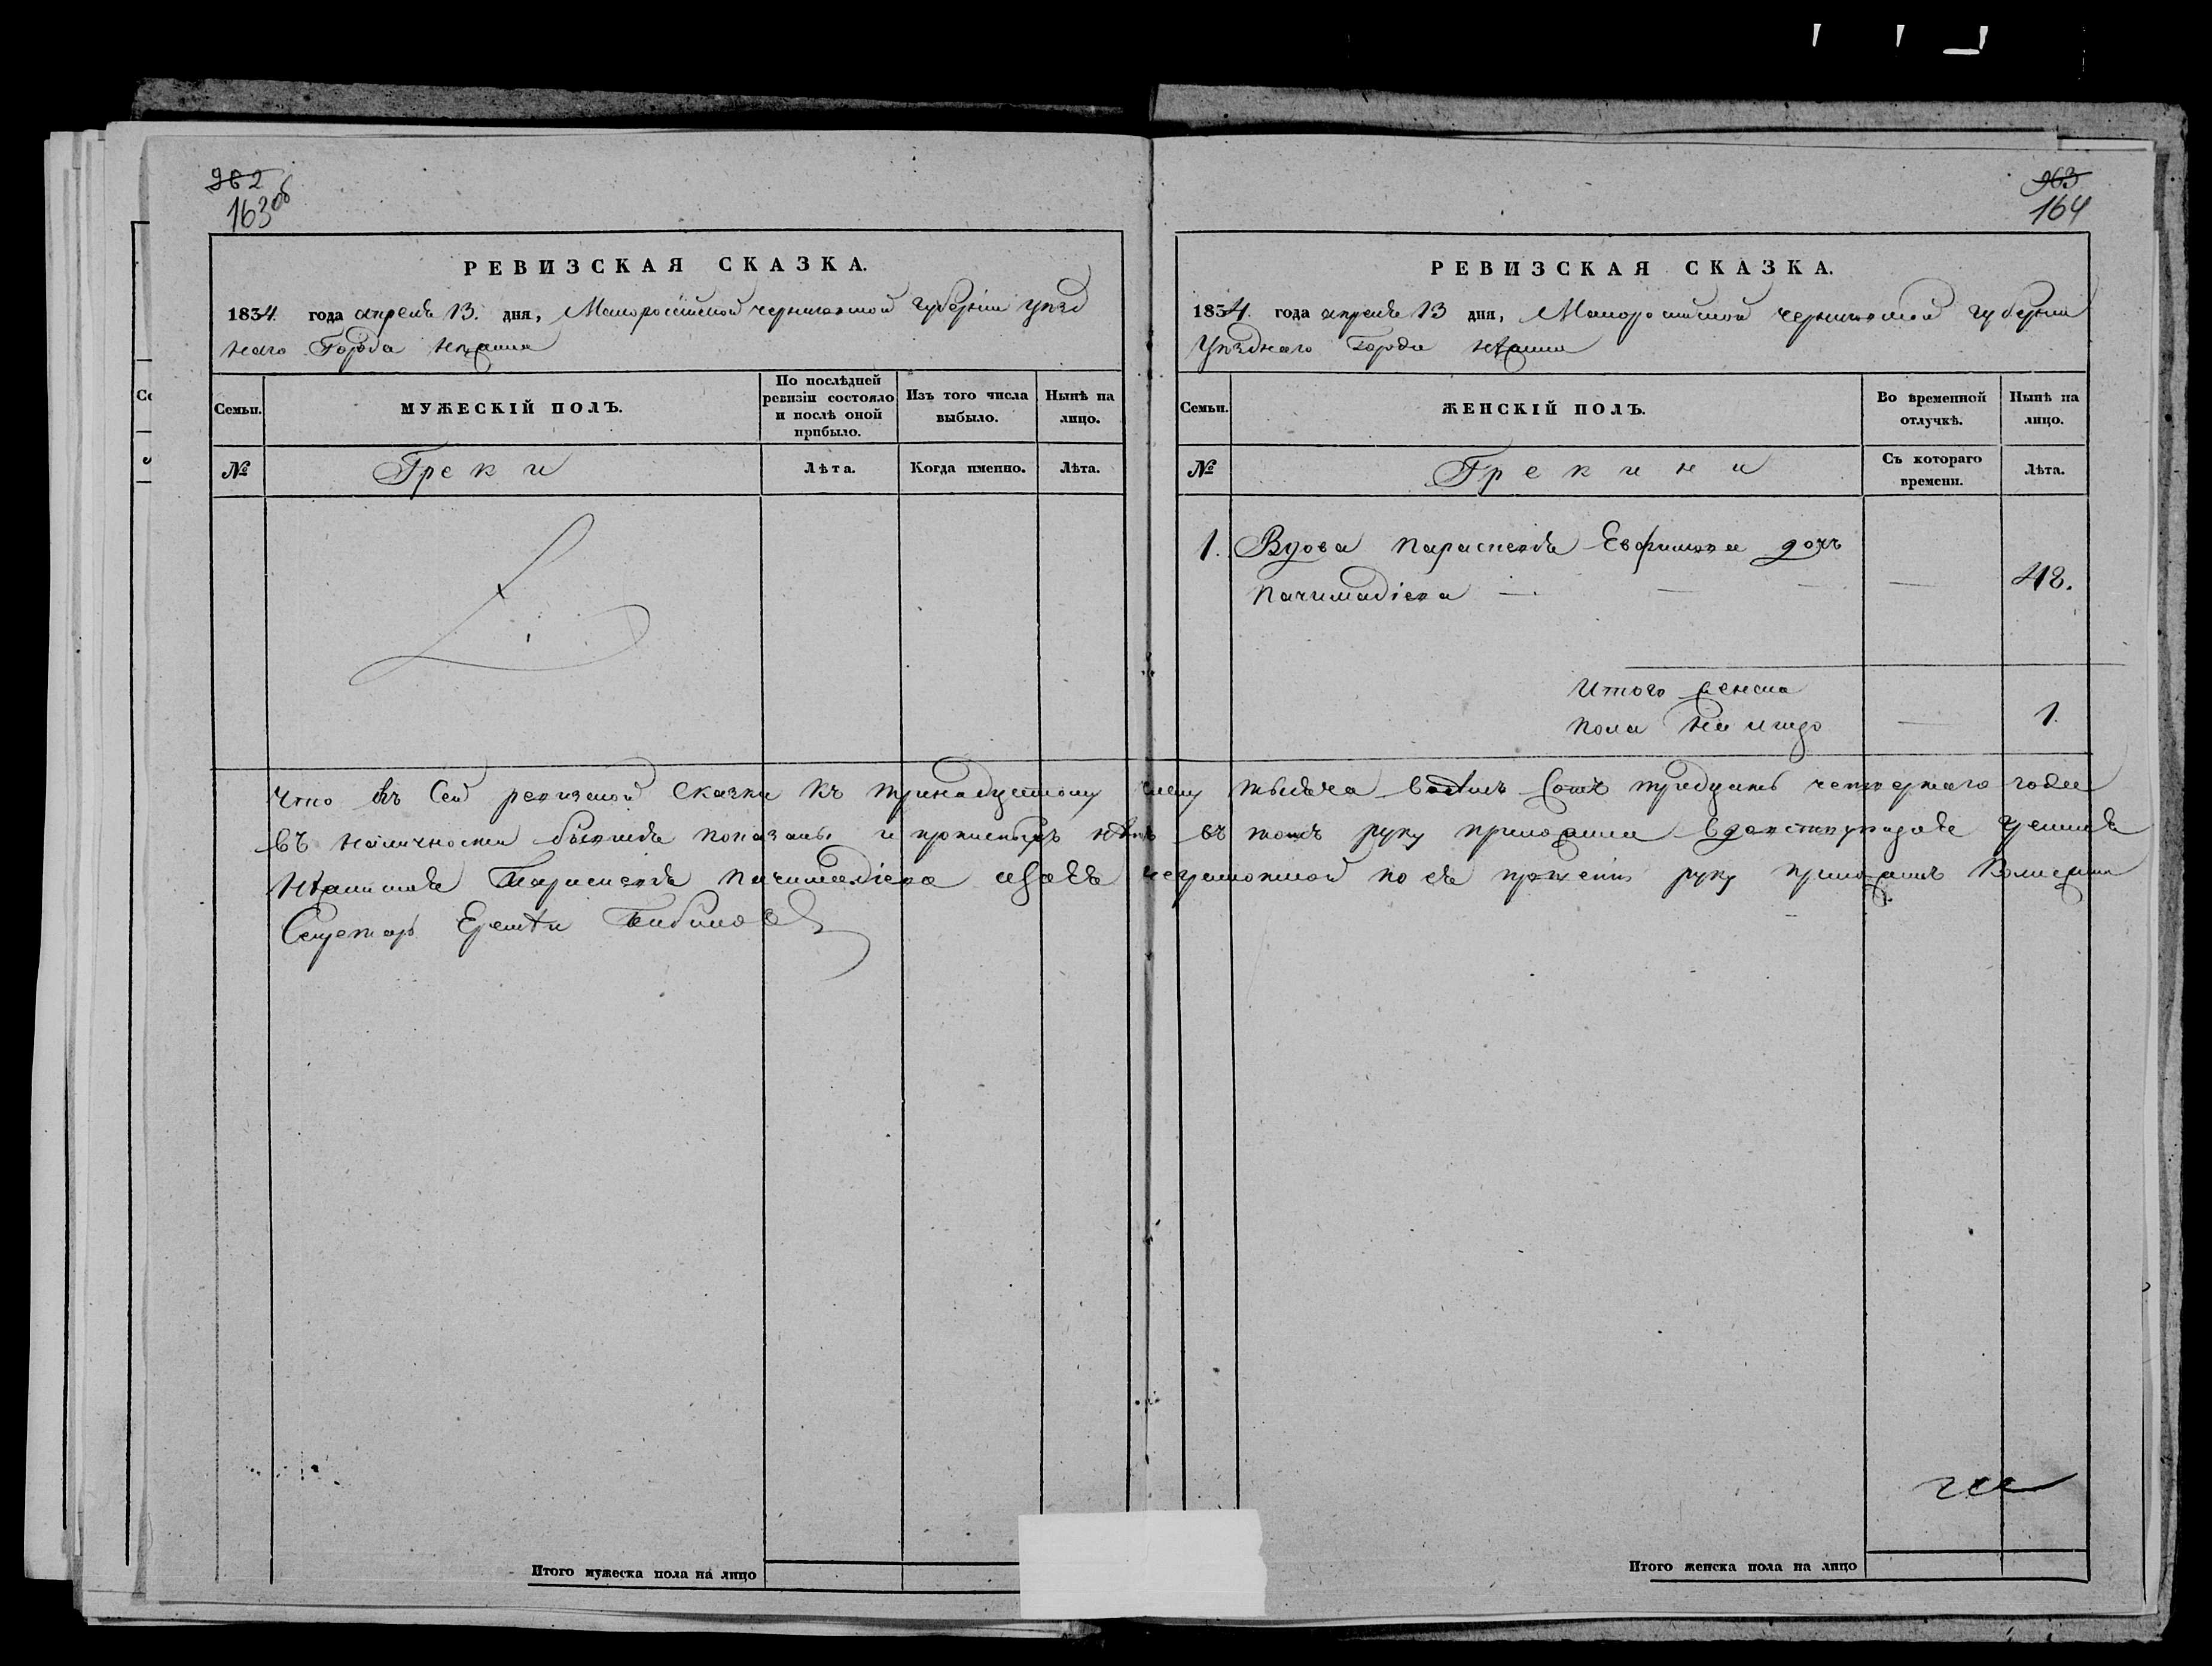 962
163 об
РЕВИЗСКАЯ СКАЗКА.
1834 года апреля 13. дня, Малоросійской черниговской губерніи уезд
наго Города Нежина
Семьи.
МУЖЕСКІЙ ПОЛЪ.
По послѣдней ревизіи состояло и послѣ оной прибыло.
Изъ того числа выбыло.
Нынѣ на лицо.
№
Греки
Лѣта.
Когда именно.
Лѣта.
963
164
РЕВИЗСКАЯ СКАЗКА.
1834 года апреля 13 дня, Малоросийской черниговской губерніи
Уезднаго Города Нежина
Семьи.
ЖЕНСКІЙ ПОЛЪ.
Во временной отлучкѣ.
Нынѣ на лицо.
№
Грекини
Съ котораго времени.
Лѣта.
1. Вдова Параскевья Евфимова дочь
Пачимадіева — — — 48.
Итого женска
пола на лицо — 1.
Что въ сей ревизской сказки къ тринадцатому числу тысяча восемь сотъ тридцать четвертаго года
въ наличности бывшія показаны и прописныхъ нетъ въ томъ руку приложила
Параскевья Пачимадіева неграмотной по ея прошенію руку приложилъ
Секретарь
Итого мужеска пола на лицо
Итого женска пола на лицо